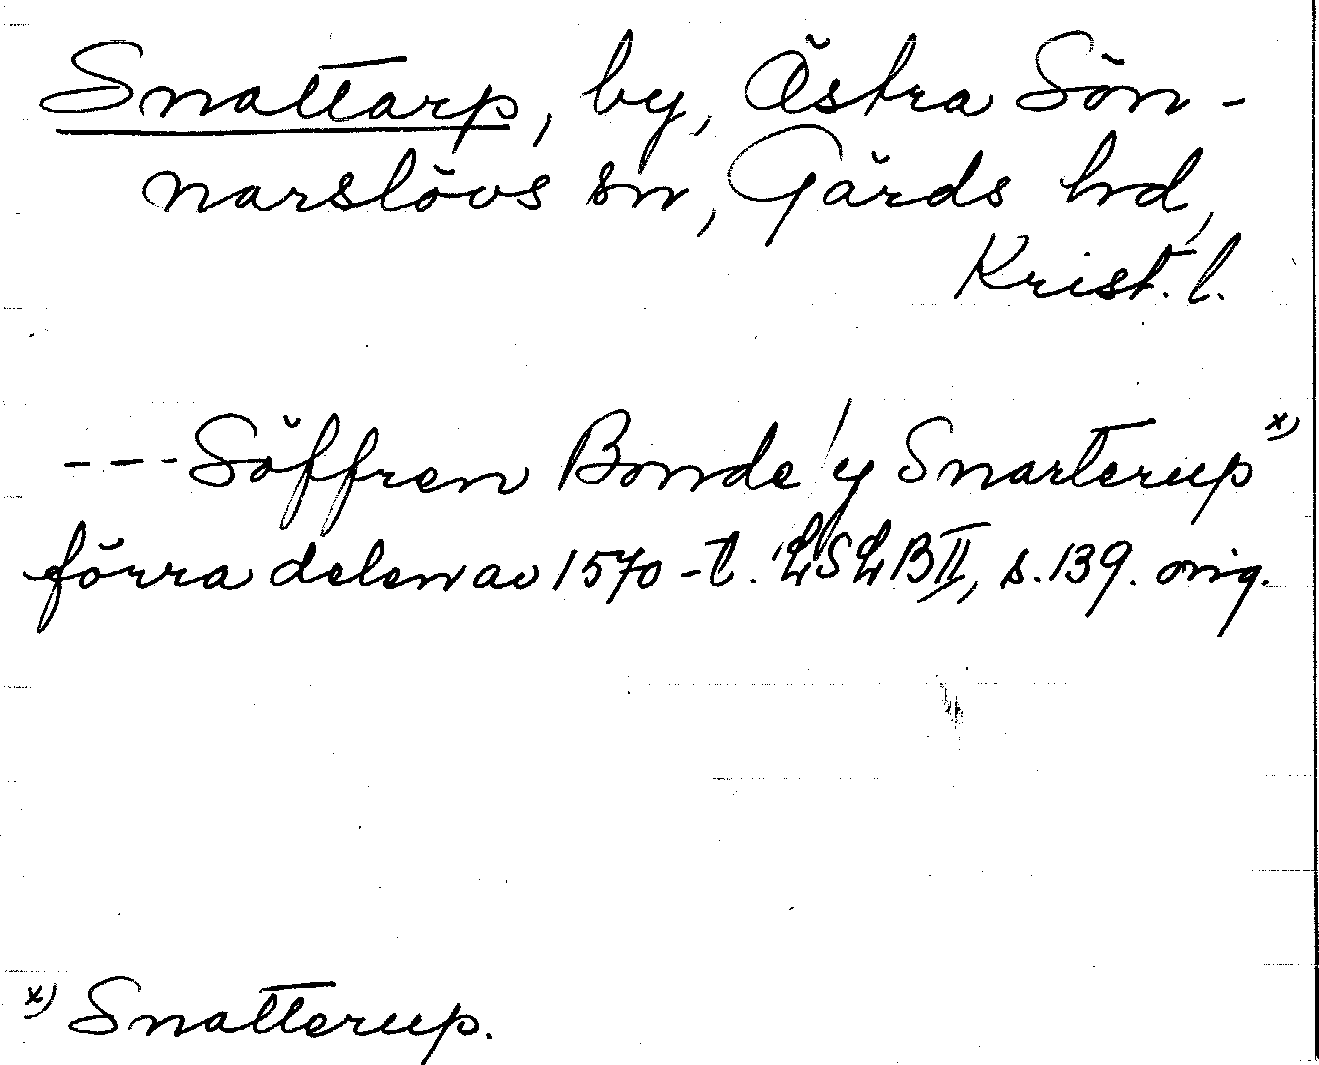 Snattarp, by, Östra Sön-
narslövs sn, Gärds hd,
Krist. l.
--- Söffren Bonde / y Snarterup x)
förra delen av 1570-t. LSLB II, s. 139. orig.
x) Snatterup.